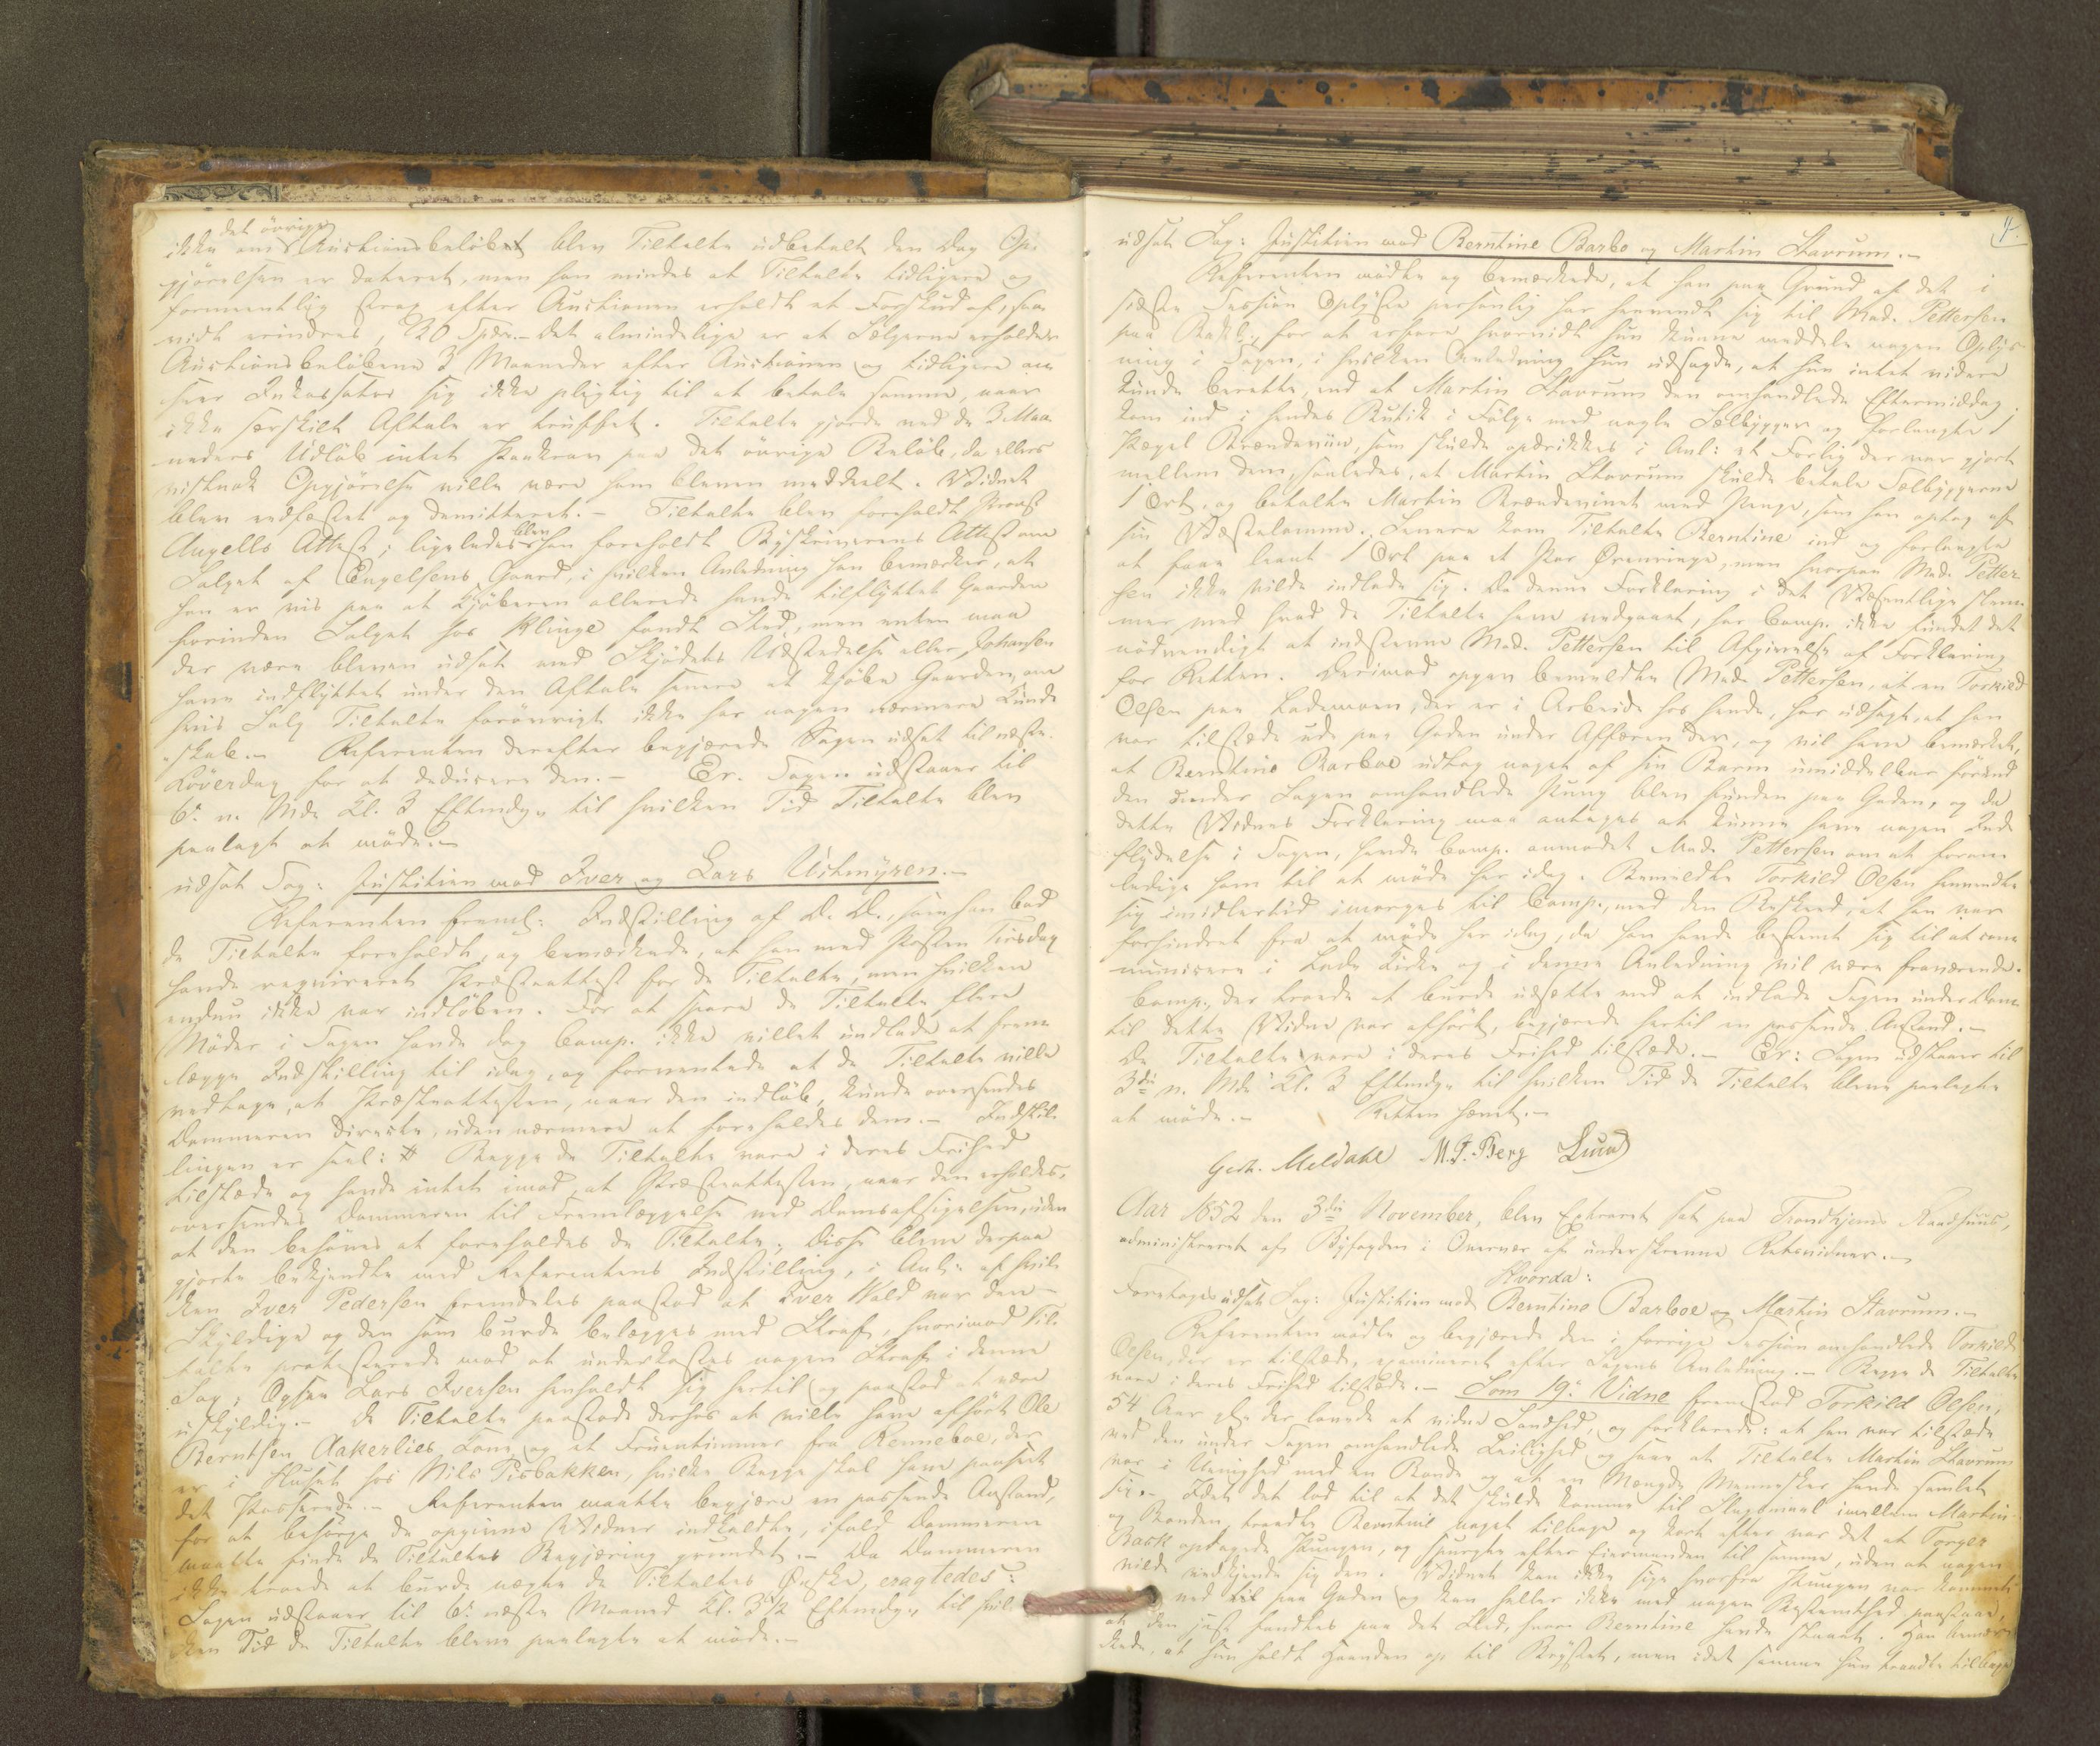 det øvrige
ikke om Auctionsbeløbet blev Tiltalte udbetalt den Dag Op-
gjørelsen er dateret, men han mindes at Tiltalte tidligere og
formeentlig strax efter Auctionen erholdt et Forskud af, saa
vidt erindres, 20 Spdr.- Det almindelige er at Sælgerne erholder
Auctionsbeløbene 3 Maaneder efter Auctionen og tidligere an-
seer Incassator sig ikke pligtig til at betale samme, naar
ikke særskilt Aftale er truffet. Tiltalte gjorde ved de 3 Maa-
neders Udløb intet Paakrav paa det øvrige Beløb, da ellers
vistnok Opgjørelse ville være ham bleven meddeelt. Vidnet
blev edfæstet og demitteret.- Tiltalte blev foreholdt Provst
Angells Attest; ligeledes blev han foreholdt Byskriverens Attest om
Salget af Engelsens Gaard, i hvilken Anledning han bemærker, at
han er vis paa at Kjøberen allerede havde tilflyttet Gaarden
forinden Salget hos Klinge fandt Sted, men enten maa
der være bleven udsat med Skjødets Udstedelse eller Johansen
have indflyttet under den Aftale senere at kjøbe Gaarden, om
hvis Salg Tiltalte forøvrigt ikke har nogen nærmere Kund-
skab.- Referenten derefter begjærede Sagen udsat til næste
Løverdag for at deducere den.- Er. Sagen udstaaer til
6te n. Md. Kl. 3 Eftmdg. til hvilken Tid Tiltalte blev
paalagt at møde.-
udsat Sag: Justitien mod Iver og Lars Ustmyren.-
Referenten freml: Indstilling af D. D., som han bad
de Tiltalte foreholdt, og bemærkede, at han med Posten Tirsdag
havde requireret Præsteattest for de Tiltalte, men hvilken
endnu ikke var indløben. For at spare de Tiltalte flere
Møder i Sagen havde dog Comp. ikke villet undlade at frem-
lægge Indstilling til idag, og formeentede at de Tiltalte ville
vedtage, at Præsteattesten, naar den indløb, kunde oversendes
Dommeren directe, uden nærmere at foreholdes dem.- Indstil-
lingen er saal: # Begge de Tiltalte vare i deres Frihed
tilstede og havde intet imod, at Præsteattesten, naar den erholdes,
oversendes Dommeren til Fremlæggelse ved Domsafsigelsen, uden
at den behøves at foreholdes de Tiltalte; Disse bleve derpaa
gjorte bekjendte med Referentens Indstilling, i Anl: af hvil-
ken Iver Pedersen fremdeles paastod at Iver Wald var den
Skyldige og den som burde belægges med Straf, hvorimod Til-
talte protesterede mod at underkastes nogen Straf i denne
Sag; Ogsaa Lars Iversen henholdt sig hertil og paastod at være
uskyldig.- De Tiltalte paastode derhos at ville have afhørt Ole
Berntsen Aakerlies Kone og et Fruentimmer fra Renneboe, der
er i Huset hos Nils Pisbakken, hvilke Begge skal have paaseet
det Passerede.- Referenten maatte begjære en passende Anstand,
for at besørge de opgivne Vidner indkaldte, ifald Dommeren
maatte finde de Tiltaltes Begjæring grundet.- Da Dommeren
ikke troede at burde nægte de Tiltaltes Ønske, eragtedes:
Sagen udstaaer til 6te næste Maaned Kl. 3½ Eftmdg., til hvil-
ken Tid de Tiltalte bleve paalagte at møde.-
4.
udsat Sag: Justitien mod Berntine Barbo og Martin Stavrum.-
Referenten mødte og bemærkede, at han paa Grund af det i
sidste Session Oplyste personlig har henvendt sig til Mad. Pettersen
paa Bakl. for at erfare hvorvidt hun kunne meddele nogen Oplys-
ning i Sagen, i hvilken Anledning hun udsagde, at hun intet videre
kunde berette, end at Martin Stavrum den omhandlede Eftermiddag
kom ind i hendes Butik i Følge med nogle Sælbygger og forlangte 1
Pægel Brændeviin, som skulde opdrikkes i Anl: et Forlig der var gjort
mellem dem, saaledes, at Martin Stavrum skulde betale Sælbyggerne
1 Ort, og betalte Martin Brændevinet med Penge, som han optog af
sin Vestelomme. Senere kom Tiltalte Berntine ind og forlangte
at faae laant 1 Ort paa et Par Ørenringe, men hvorpaa Mad. Petter-
sen ikke vilde indlade sig. Da denne Forklaring i det Væsentlige stem-
mer med hvad de Tiltalte have vedgaaet, har Comp. ikke fundet det
nødvendigt at indstevne Mad. Pettersen til Afgivelse af Forklaring
for Retten. Derimod opgav bemeldte Mad. Pettersen, at en Torkild
Olsen paa Lademoen, der er i Arbeide hos hende, har udsagt, at han
var tilstede ude paa Gaden under Affæren der, og vil have bemærket,
at Berntine Barboe udtog noget af sin Barm umiddelbar førend
den under Sagen omhandlede Pung blev funden paa Gaden, og da
dette Vidnes Forklaring maa antages at kunne have nogen Ind-
flydelse i Sagen, havde Comp. anmodet Mad. Pettersen om at foran-
ledige ham til at møde her idag. Bemeldte Torkild Olsen henvendte
sig imidlertid imorges til Comp., med den Besked, at han var
forhindret fra at møde her idag, da han havde bestemt sig til at com-
municere i Lade Kirke og i denne Anledning vil være fraværende.
Comp., der troede at burde udsætte med at indlade Sagen under Dom
til dette Vidne var afhørt, begjærede hertil en passende Anstand.-
De Tiltalte vare i deres Frihed tilstede.- Er: Sagen udstaaer til
3die n. Md. Kl. 3 Eftmdg. til hvilken Tid de Tiltalte bleve paalagte
at møde.- Retten hævet.-
Gerh. Meldahl M.P. Berg Lund
Aar 1852 den 3die November, blev Extraret sat paa Trondhjems Raadhuus,
administreret af Byfogden i Overvær af underskrevne Retsvidner.-
Hvorda:
Foretoges udsat Sag: Justitien mod Berntine Barboe og Martin Stavrum.-
Referenten mødte og begjærede den i forrige Session omhandlede Torkild
Olsen, der er tilstede, examineret efter Sagens Anledning.- Begge de Tiltalte
vare i deres Frihed tilstede.- Som 19de Vidne fremstod Torkild Olsen,
54 Aar gl. der lovede at vidne Sandhed, og forklarede: at han var tilstede
ved den under Sagen omhandlede Leilighed og saae at Tiltalte Martin Stavrum
var i Uenighed med en Bonde og at en Mængde Mennesker havde samlet
sig.- Idet det lod til at det skulde komme til Slagsmaal imellem Martin
og Bonden, traadte Berntine noget tilbage og kort efter var det at Torger
Bark opdagede Pungen, og spurgte efter Eiermanden til samme, uden at nogen
vilde vedkjende sig den. Vidnet kan ikke sige hvorfra Pungen var kommet
ned til paa Gaden og kan heller ikke med nogen Bestemthed paastaae,
at den just fandtes paa det Sted, hvor Berntine havde staaet. Han bemær-
kede, at hun holdt Haanden op til Brystet, men idet samme hun traadte tilbage